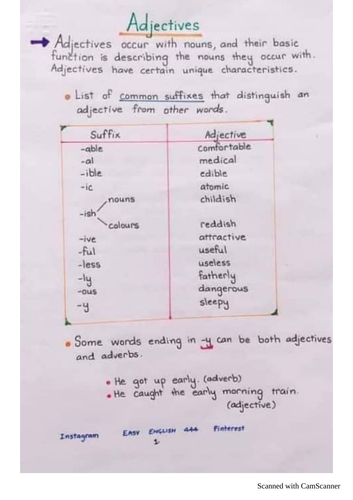 Adjectives
Adjectives occur with nouns, and their basic
function is describing the nouns they occur with.
Adjectives have certain unique characteristics.
List of common suffixes that distinguish an
adjective from other words.
Suffix Adjective
-able comfortable
-al medical
-ible edible
-ic atomic
nouns childish
-ish
colours reddish
-ive attractive
-ful useful
-less useless
-ly fatherly
-ous dangerous
-y sleepy
Some words ending in -y can be both adjectives
and adverbs.
He got up early. (adverb)
He caught the early morning train.
(adjective)
Instagram EASY ENGLISH 444 Pinterest
1
Scanned with CamScanner